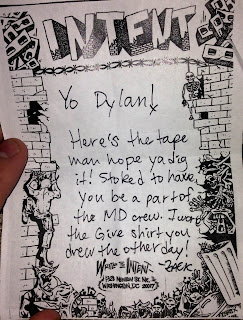 INTENT
Yo Dylan!
Here's the tape
man hope ya dig
it! Stoked to have
you be a part of
the MD crew.
the Give shirt you
drew the other day!
WRITE TO INTENT
~ZACK
WASHINGTON, DC 20017